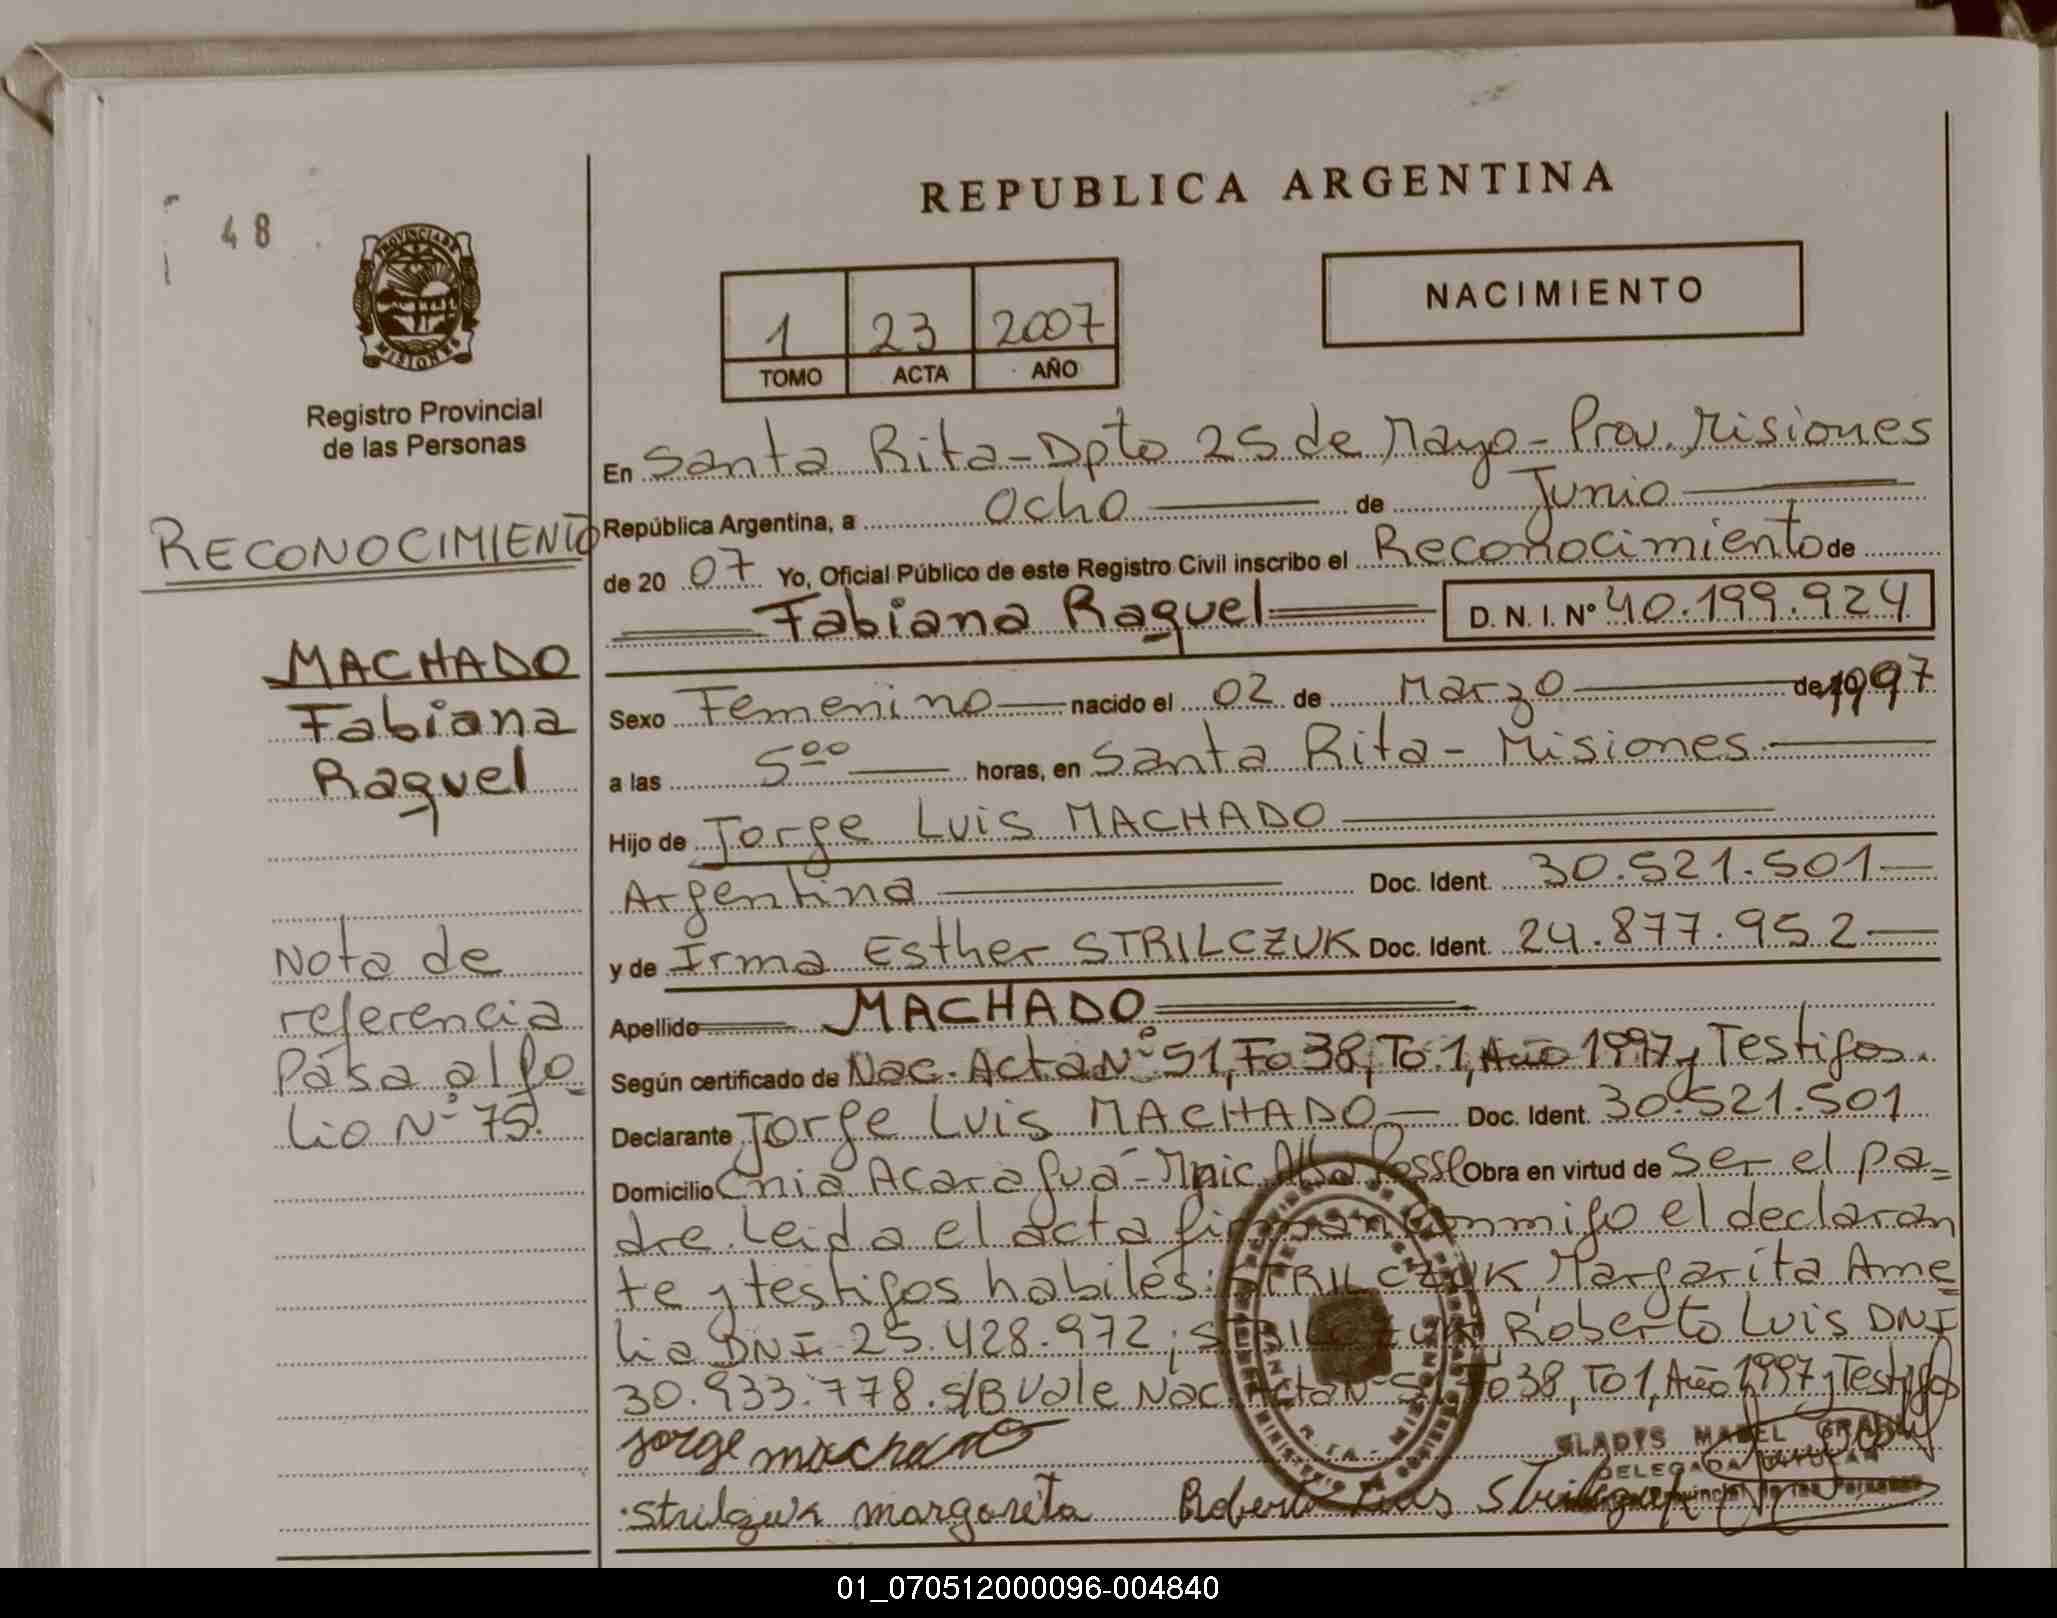 48
PROVINCIA DE
MISIONES
Registro Provincial
de las Personas
RECONOCIMIENTO
MACHADO
Fabiana
Raquel
Nota de
referencia
Pasa al fo=
lio Nº 75.
REPUBLICA ARGENTINA
NACIMIENTO
1 23 2007
TOMO ACTA AÑO
En Santa Rita - Dpto 25 de Mayo - Prov. Misiones
República Argentina, a Ocho de Junio
de 20 07 Yo, Oficial Público de este Registro Civil inscribo el Reconocimiento de
Fabiana Raquel D. N. I. Nº 40.199.924
Sexo Femenino nacido el 02 de Marzo de 1997
a las 5⁰⁰ horas, en Santa Rita - Misiones.
Hijo de Jorge Luis MACHADO
Argentina Doc. Ident. 30.521.501
y de Irma Esther STRILCZUK Doc. Ident. 24.877.952
Apellido MACHADO
Según certificado de Nac. Acta Nº 51, Fo 38, To.1, Año 1997 y Testigos.
Declarante Jorge Luis MACHADO Doc. Ident. 30.521.501
Domicilio Cnia Acaraguá - Mnic Alba Posse Obra en virtud de Ser el pa=
dre. Leida el acta firman conmigo el declaran
te y testigos habiles: STRILCZUK Margarita Ame=
lia DNI 25.428.972; STRILCZUK Roberto Luis DNI
30.933.778. S/B Vale Nac. Acta Nº 51, Fo 38, To 1, Año 1997 y Testigos
Jorge machado
GLADYS MABEL
DELEGADA TITULAR
Provincial de las Personas
Strilczuk margarita Roberto Luis Strilczuk
01_070512000096-004840